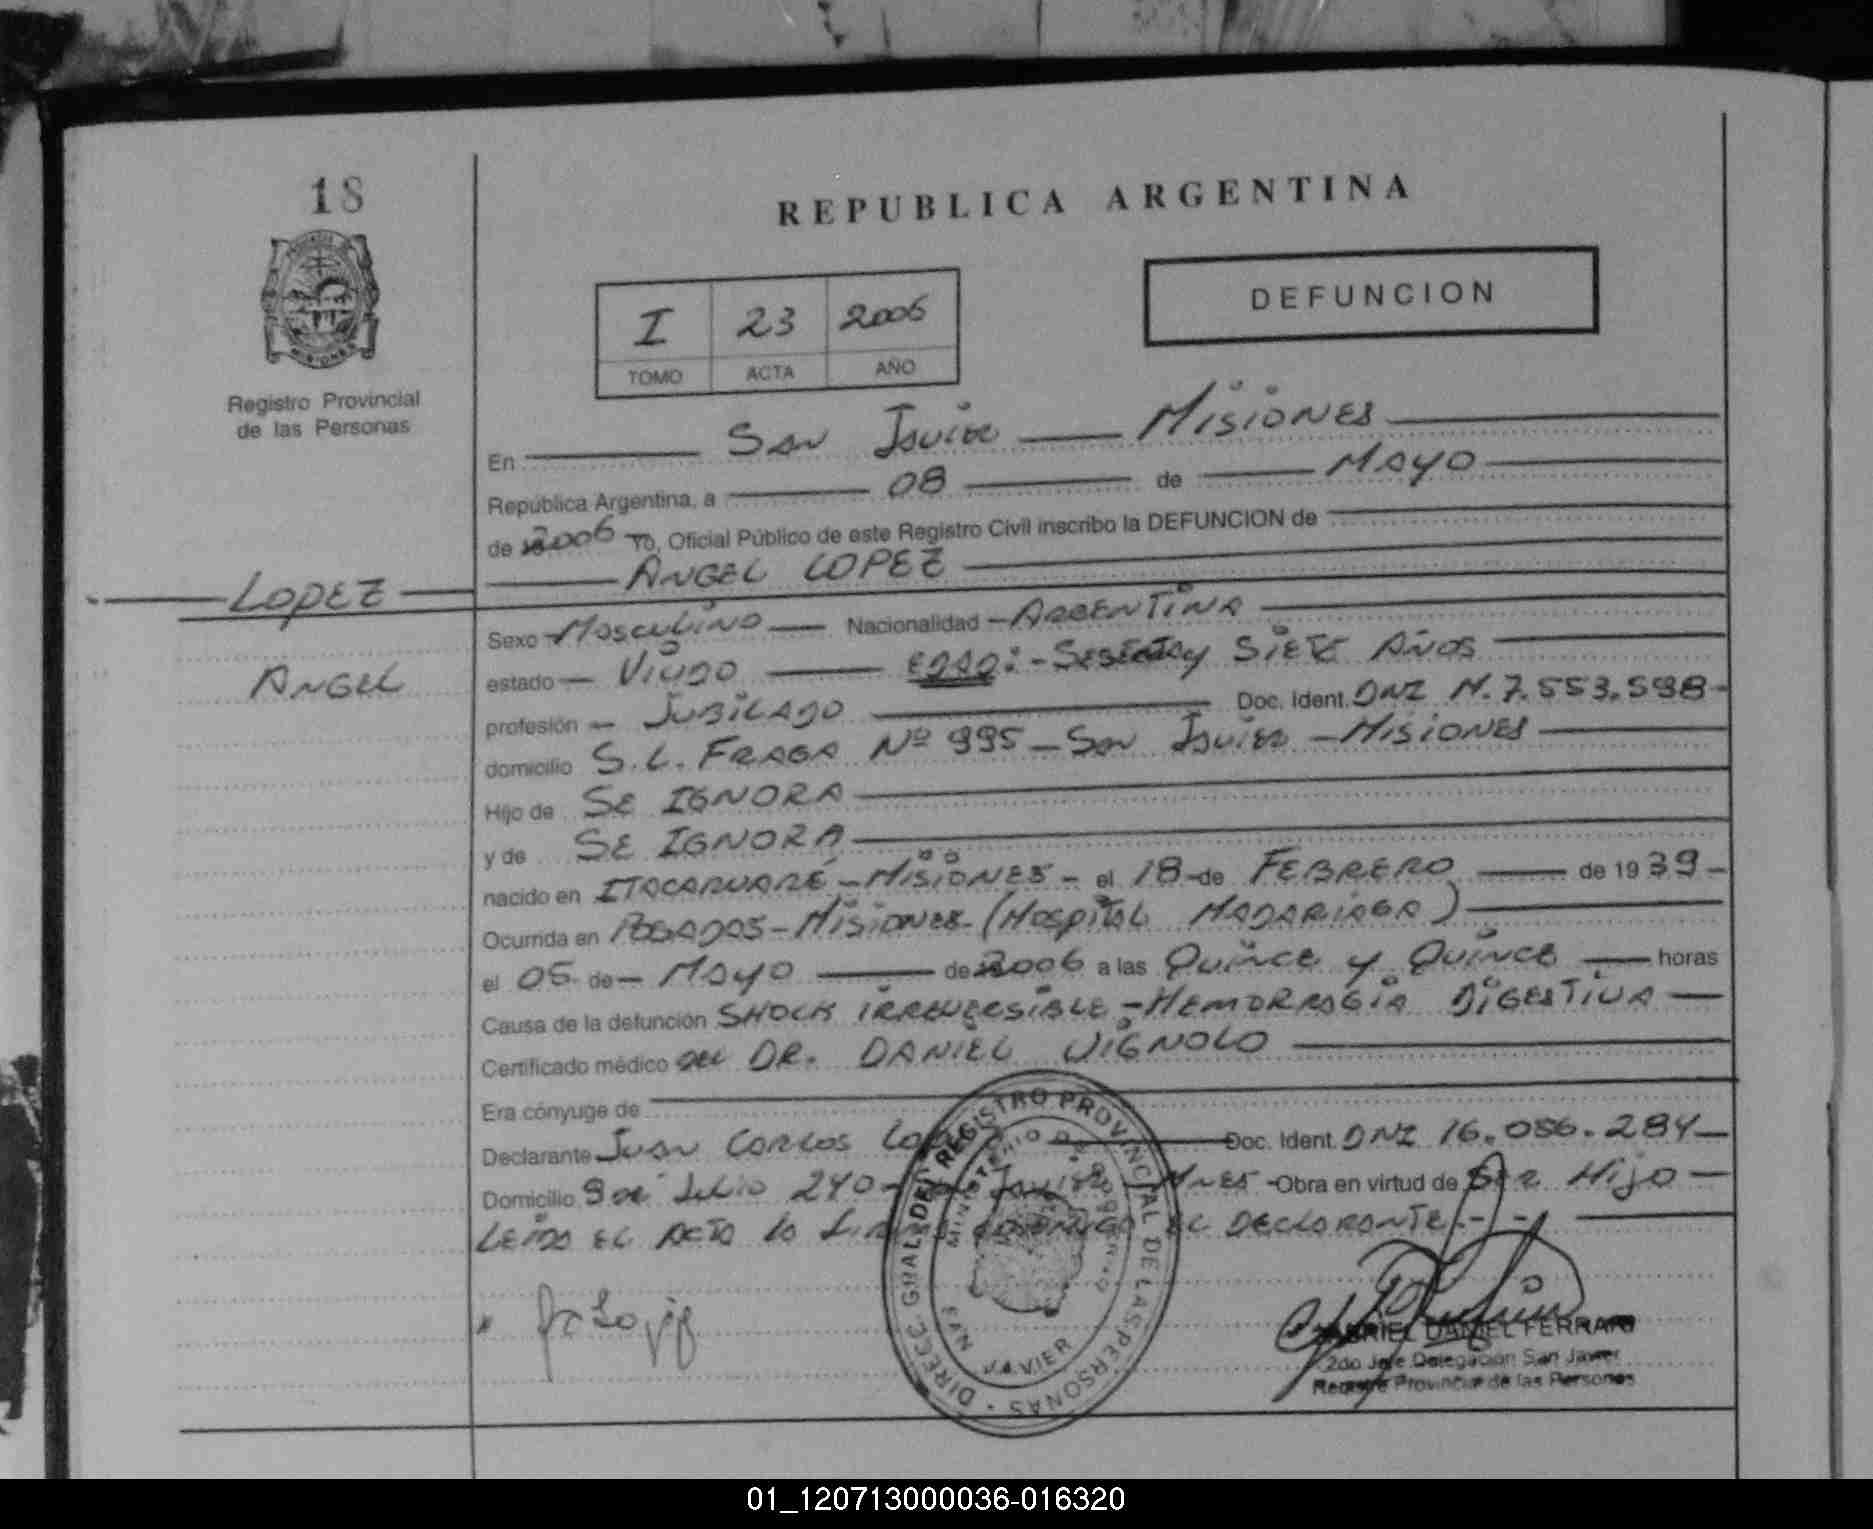 18
REPUBLICA ARGENTINA
DEFUNCION
I 23 2006
TOMO ACTA AÑO
Registro Provincial
de las Personas
En San Javier Misiones
República Argentina, a 08 de MAYO
de 2006 Yo, Oficial Público de este Registro Civil inscribo la DEFUNCION de
LOPEZ
ANGEL LOPEZ
ANGEL
Sexo Masculino Nacionalidad ARGENTINA
estado Viudo EDAD:- Sesenta y SIETE AÑOS
profesión JUBILADO Doc. Ident. DNI N. 7.553.598-
domicilio S.L. FRAGA Nº 995 - San Javier - MISIONES
Hijo de SE IGNORA
y de SE IGNORA
nacido en ITACARUARÉ - MISIONES - el 18 de FEBRERO de 1939-
Ocurrida en POSADAS - MISIONES - (HOSPITAL MADARIAGA)
el 05 de MAYO de 2006 a las Quince y Quince horas
Causa de la defunción SHOCK IRREVERSIBLE - HEMORRAGIA DIGESTIVA
Certificado médico del DR. DANIEL VIGNOLO
Era cónyuge de
Declarante Juan Carlos Lopez Doc. Ident. DNI 16.056.284
Domicilio 9 de Julio 240- Javier Mnes - Obra en virtud de Ser Hijo
LEIDO EL ACTA la conmigo EL DECLARANTE.- -
DIRECC. GRAL DEL REGISTRO PROVINCIAL DE LAS PERSONAS
MINISTERIO DE GOBIERNO
SAN JAVIER
GABRIEL DANIEL FERRARI
2do Jefe Delegación San Javier
Registro Provincial de las Personas
01_120713000036-016320